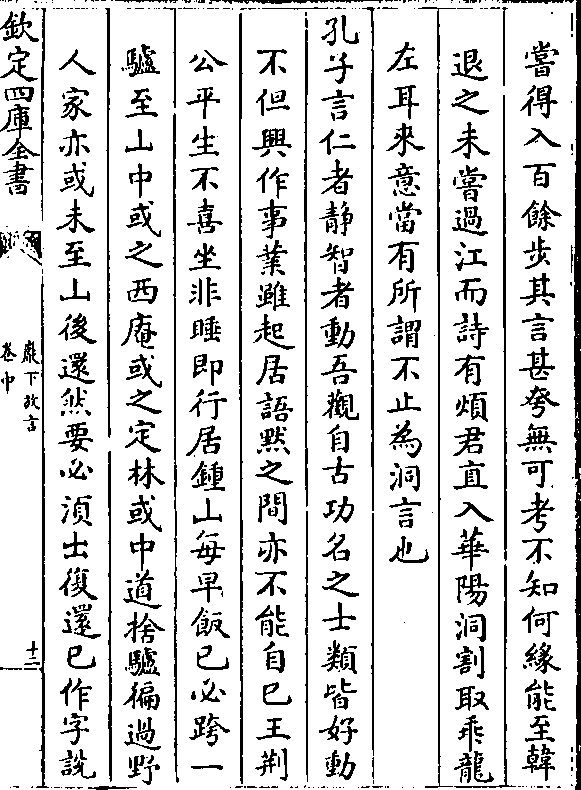 嘗得入百餘步其言甚夸無可考不知何縁能至韓
退之未嘗過江而詩有煩君直入華陽洞割取乖龍
左耳來意當有所謂不止為洞言也
孔子言仁者靜智者動吾觀自古功名之士類皆好動
不但興作事業雖起居語黙之間亦不能自已王荆
公平生不喜坐非睡即行居鍾山每早飯已必跨一
驢至山中或之西庵或之定林或中道捨驢徧過野
人家亦或未至山後還然要必須士復還已作字説
欽定四庫全書
巖下放言
卷中
十二